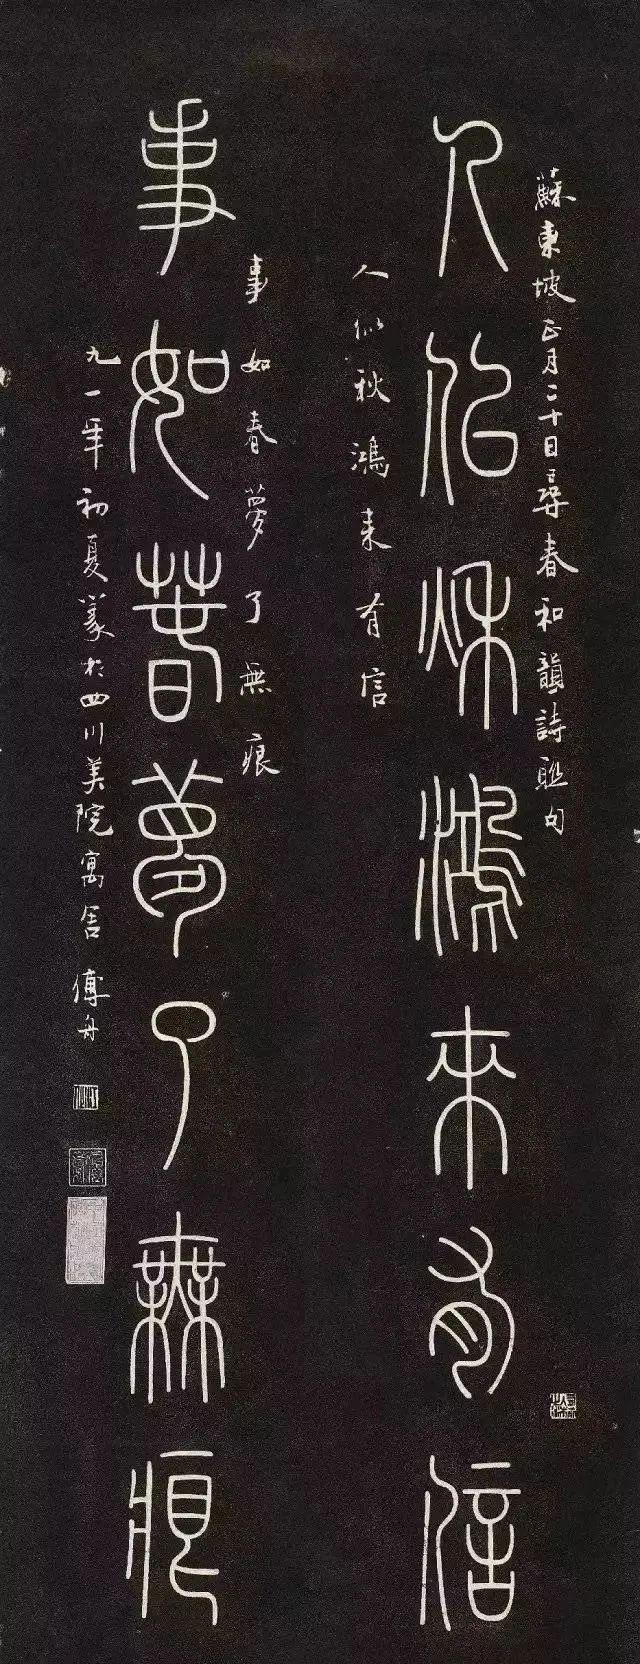 蘇東坡正月二十日尋春和韻詩聯句
人似秋鴻來有信
人似秋鴻来有信
事如春夢了無痕
事如春夢了無痕
九一年初夏篆於四川美院寓舍 傅舟